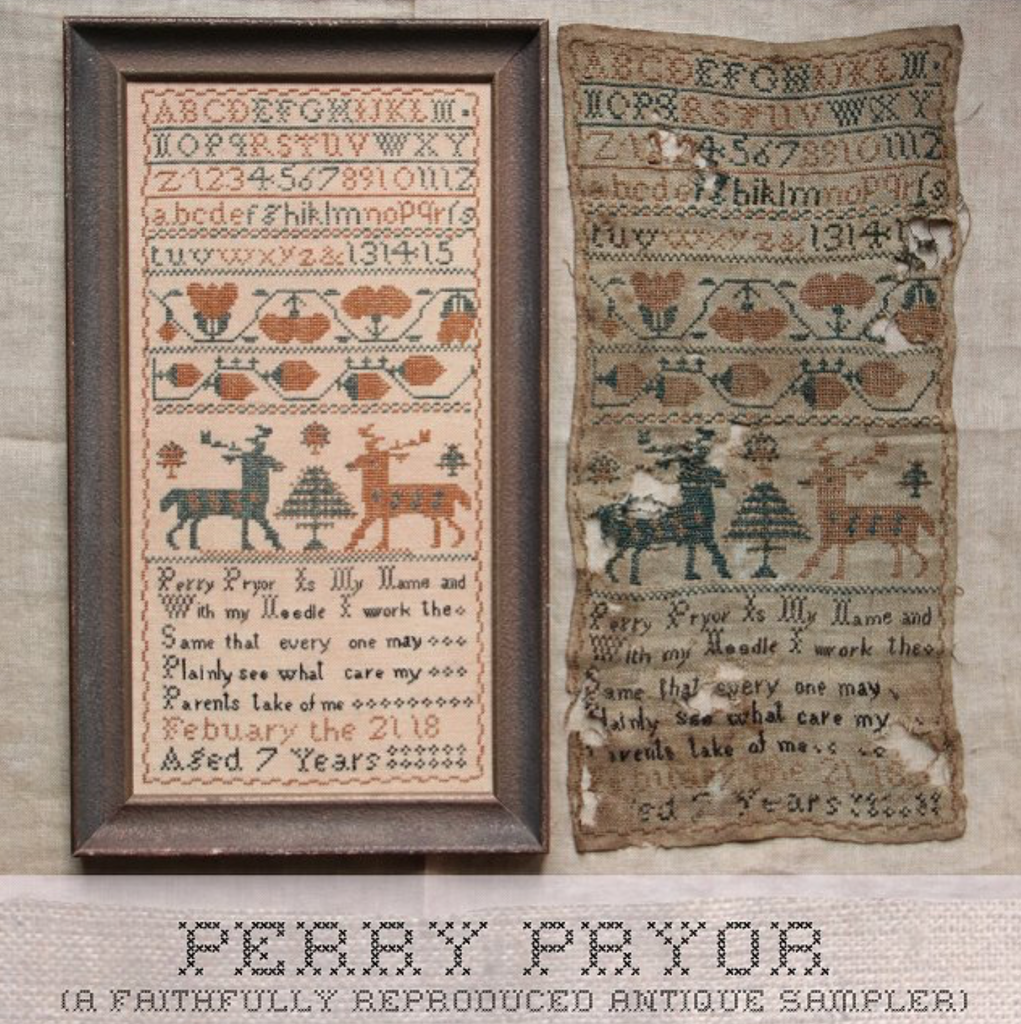 ABCDEFGHIJKL M.
NOPQRSTUVWXY
Z123456789101112
abcdefghiklmnopqrſs
tuvwxyz&131415
Perry Pryor Is My Name and
With my Needle I work the
Same that every one may
Plainly see what care my
Parents take of me
Febuary the 21 18
Aged 7 Years
ABCDEFGHIJKL M.
NOPQRSTUVWXY
Z1 456789101112
abcdefghiklmnopqrſs
tuvwxyz&1314
Perry Pryor Is My Name and
With my Needle I work the
Same that every one may
Plainly see what care my
arents take of me
the 21 18
ed 7 Years
PERRY PRYOR
(A FAITHFULLY REPRODUCED ANTIQUE SAMPLER)